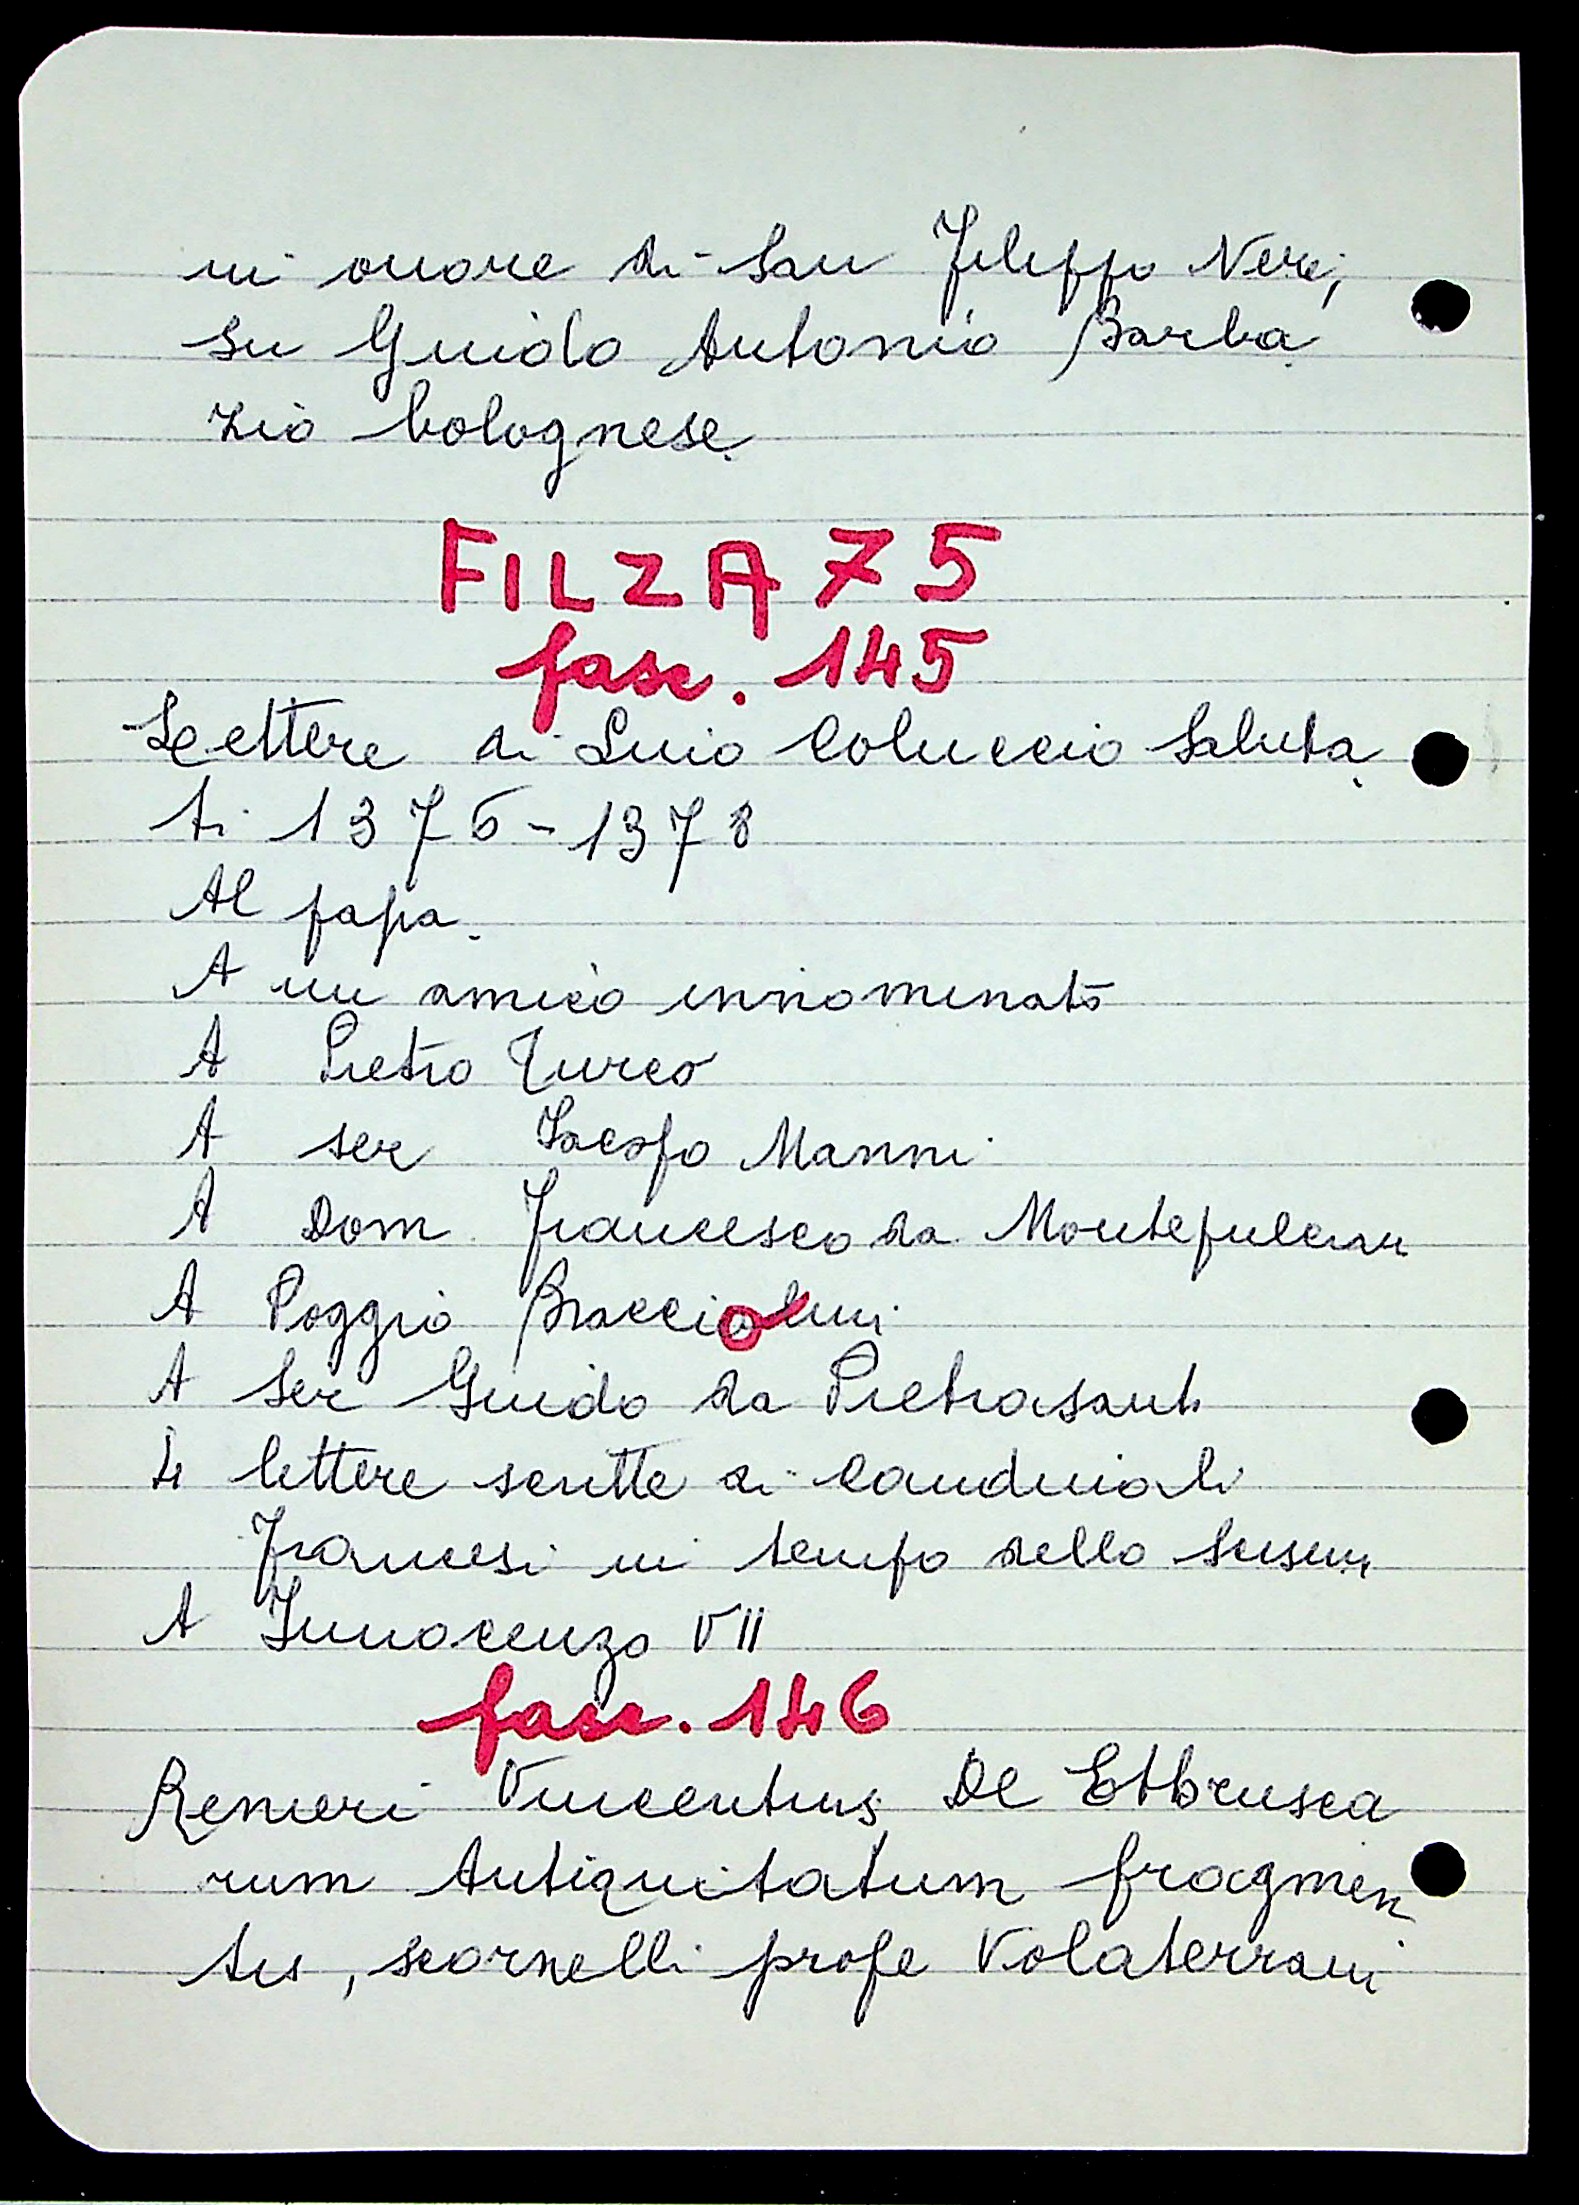 in onore di San Filippo Neri,
su Guido Antonio Barba
zio bolognese
FILZA 75
fasc. 145
Lettere di Lino Coluccio Saluta
ti 1376-1378
Al papa
A un amico innominato
A Pietro Turco
A ser Iacopo Manni
A Dom Francesco da Montepulcian
A Poggio Bracciolini
A Ser Guido da Pietrasant
4 lettere scritte ai Cardinali
Francesi in tempo dello scism
A Innocenzo VII
fasc. 146
Renieri Vincentius De Ethrusca
rum Antiquitatum fragmen
tis, scornelli prope Volaterram